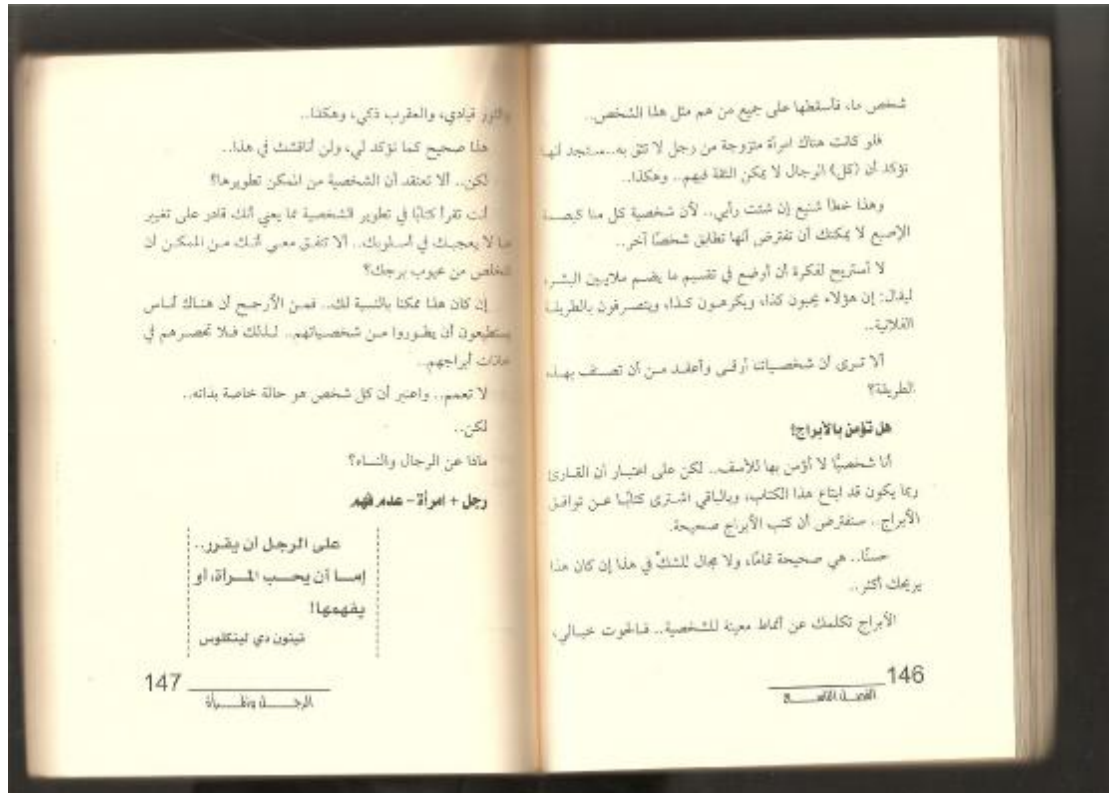 شخص ما، فأسقطها على جميع من هم مثل هذا الشخص..
فلو كانت هناك امرأة متزوجة من رجل لا تثق به..ستجد أنها
تؤكد أن (كل) الرجال لا يمكن الثقة فيهم.. وهكذا..
وهذا خطأ شنيع إن شئت رأيي.. لأن شخصية كل منا كبصمة
الإصبع لا يمكنك أن تفترض أنها تطابق شخصًا آخر..
لا أستريح لفكرة أن أوضع في تقسيم ما يضم ملايين البشر،
ليقال: إن هؤلاء يحبون كذا، ويكرهون كذا، ويتصرفون بالطريقة
الفلانية..
ألا ترى أن شخصياتنا أرقى وأعقد من أن تصنف بهذه
الطريقة؟
هل تؤمن بالأبراج؟
أنا شخصيًّا لا أؤمن بها للأسف.. لكن على اعتبار أن القارئ
ربما يكون قد ابتاع هذا الكتاب، وبالباقي اشترى كتابًا عن توافق
الأبراج.. سنفترض أن كتب الأبراج صحيحة.
حسنًا.. هي صحيحة تمامًا، ولا مجال للشكِّ في هذا إن كان هذا
يريحك أكثر..
الأبراج تكلمك عن أنماط معينة للشخصية.. فالحوت خيالي،
146
الفصل التاسع
والثور قيادي، والعقرب ذكي، وهكذا..
هذا صحيح كما تؤكد لي، ولن أناقشك في هذا..
لكن.. ألا تعتقد أن الشخصية من الممكن تطويرها؟
أنت تقرأ كتابًا في تطوير الشخصية مما يعني أنك قادر على تغيير
ما لا يعجبك في أسلوبك.. ألا تتفق معي أنك من الممكن أن
تتخلص من عيوب برجك؟
إن كان هذا ممكنا بالنسبة لك.. فمن الأرجح أن هناك أناس
يستطيعون أن يطوروا من شخصياتهم.. لذلك فلا تحصرهم في
خانات أبراجهم..
لا تعمم.. واعتبر أن كل شخص هو حالة خاصة بذاته..
لكن..
ماذا عن الرجال والنساء؟
رجل + امرأة = عدم فهم
على الرجل أن يقرر..
إما أن يحب المرأة، أو
يفهمها!
نينون دي لينكلوس
147
الرجل والمرأة